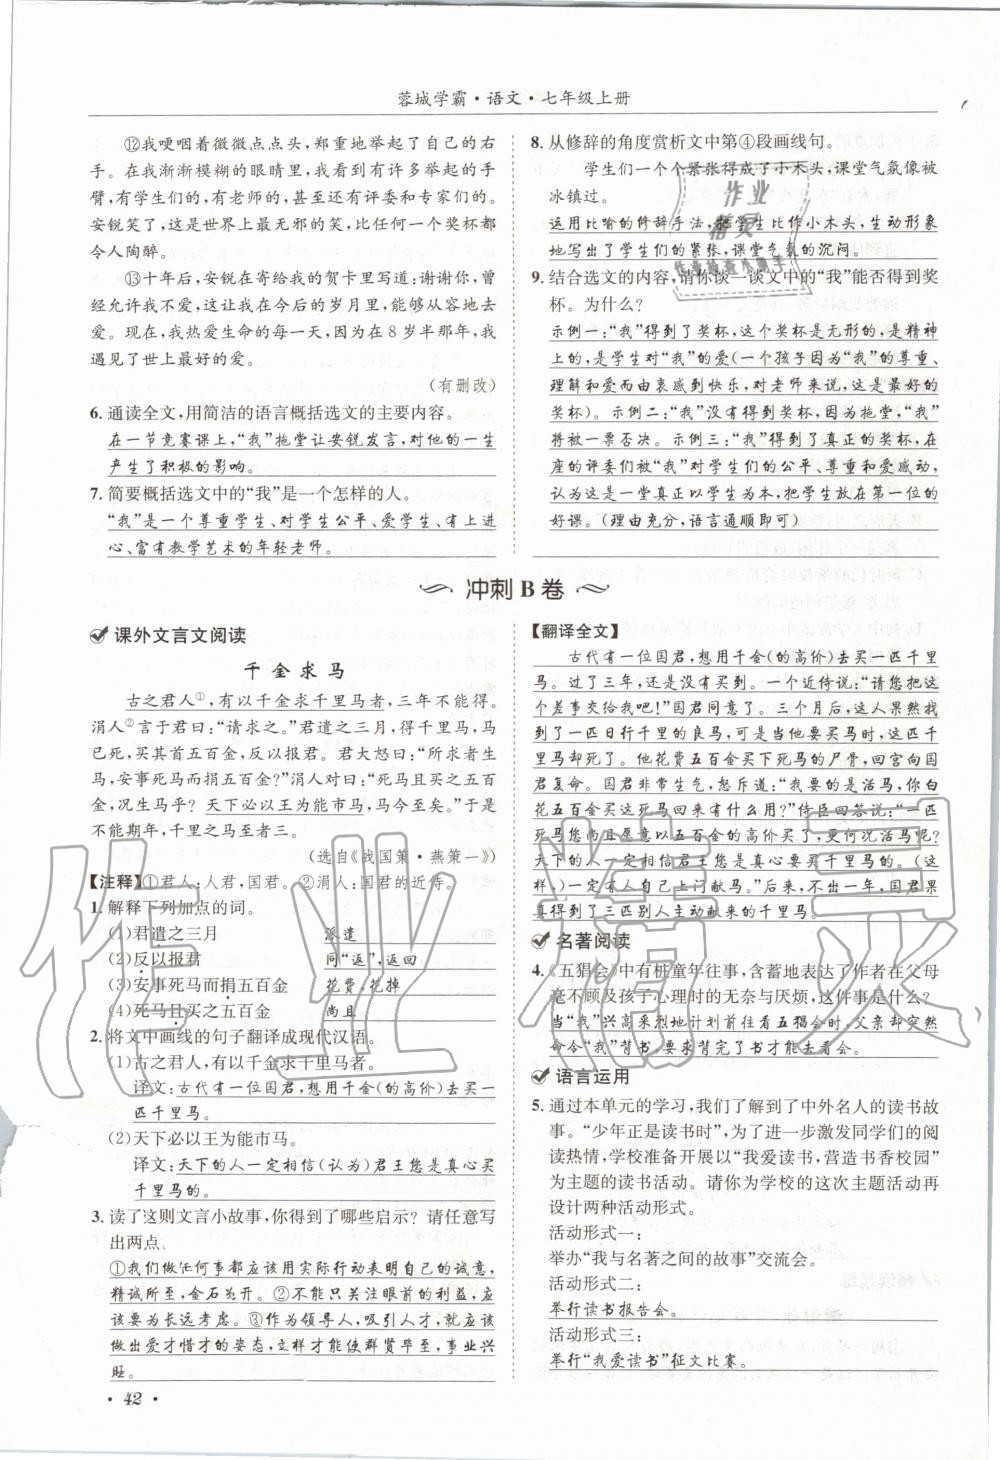 蓉城学霸·语文·七年级上册
⑫我哽咽着微微点点头,郑重地举起了自己的右
手。在我渐渐模糊的眼睛里,我看到有许多举起的手
臂,有学生们的,有老师的,甚至还有评委和专家们的。
安锐笑了,这是世界上最无邪的笑,比任何一个奖杯都
令人陶醉。
⑬十年后,安锐在寄给我的贺卡里写道:谢谢你,曾
经允许我不爱,这让我在今后的岁月里,能够从容地去
爱。现在,我热爱生命的每一天,因为在8岁半那年,我
遇见了世上最好的爱。
(有删改)
6. 通读全文,用简洁的语言概括选文的主要内容。
在一节竞赛课上,“我”拖堂让安锐发言,对他的一生
产生了积极的影响。
7. 简要概括选文中的“我”是一个怎样的人。
“我”是一个尊重学生、对学生公平、爱学生、有上进
心、富有教学艺术的年轻老师。
8. 从修辞的角度赏析文中第④段画线句。
学生们一个个紧张得成了小木头,课堂气氛像被
冰镇过。
运用比喻的修辞手法,把学生比作小木头,生动形象
地写出了学生们的紧张,课堂气氛的沉闷。
9. 结合选文的内容,请你谈一谈文中的“我”能否得到奖
杯。为什么?
示例一:“我”得到了奖杯,这个奖杯是无形的,是精神
上的,是学生对“我”的爱(一个孩子因为“我”的尊重、
理解和爱而由衷感到快乐,对老师来说,这是最好的
奖杯)。示例二:“我”没有得到奖杯,因为拖堂,“我”
将被一票否决。示例三:“我”得到了真正的奖杯,在
座的评委们被“我”对学生们的公平、尊重和爱感动,
认为这是一堂真正以学生为本,把学生放在第一位的
好课。(理由充分,语言通顺即可)
冲刺B卷
课外文言文阅读
千金求马
古之君人①,有以千金求千里马者,三年不能得。
涓人②言于君曰:“请求之。”君遣之三月,得千里马,马
已死,买其首五百金,反以报君。君大怒曰:“所求者生
马,安事死马而捐五百金?”涓人对曰:“死马且买之五百
金,况生马乎?天下必以王为能市马,马今至矣。”于是
不能期年,千里之马至者三。
(选自《战国策·燕策一》)
【注释】①君人:人君,国君。②涓人:国君的近侍。
1. 解释下列加点的词。
(1)君遣之三月 派遣
(2)反以报君 同“返”,返回
(3)安事死马而捐五百金 花费,花掉
(4)死马且买之五百金 尚且
2. 将文中画线的句子翻译成现代汉语。
(1)古之君人,有以千金求千里马者。
译文:古代有一位国君,想用千金(的高价)去买一
匹千里马。
(2)天下必以王为能市马。
译文:天下的人一定相信(认为)君王您是真心买
千里马的。
3. 读了这则文言小故事,你得到了哪些启示?请任意写
出两点。
①我们做任何事都应该用实际行动表明自己的诚意,
精诚所至,金石为开。②不能只关注眼前的利益,应
该要为长远考虑。③作为领导人,吸引人才,就应该
做出爱才惜才的姿态,这样才能使群贤毕至,事业兴
旺。
【翻译全文】
古代有一位国君,想用千金(的高价)去买一匹千里
马。过了三年,还是没有买到。一个近侍说:“请您把这
个差事交给我吧!”国君同意了。三个月后,这人果然找
到了一匹日行千里的良马,可是当他要买马时,这匹千里
马却死了。他花费五百金买下死马的尸骨,回宫向国
君复命。国君非常生气,怒斥道:“我要的是活马,你白
花五百金买这死马回来有什么用?”侍臣回答说:“一匹
死马您尚且愿意以五百金的高价买了,更何况活马呢?
天下的人一定相信君王您是真心要买千里马的。(这
样,)一定有人自己上门献马。”后来,不出一年,国君果
真得到了三匹别人主动献来的千里马。
名著阅读
4.《五猖会》中有桩童年往事,含蓄地表达了作者在父母
毫不顾及孩子心理时的无奈与厌烦,这件事是什么?
当“我”兴高采烈地计划前往看五猖会时,父亲却突然
命令“我”背书,要求背完了书才能去看会。
语言运用
5. 通过本单元的学习,我们了解到了中外名人的读书故
事。“少年正是读书时”,为了进一步激发同学们的阅
读热情,学校准备开展以“我爱读书,营造书香校园”
为主题的读书活动。请你为学校的这次主题活动再
设计两种活动形式。
活动形式一:
举办“我与名著之间的故事”交流会。
活动形式二:
举行读书报告会。
活动形式三:
举行“我爱读书”征文比赛。
· 42 ·
作业精灵